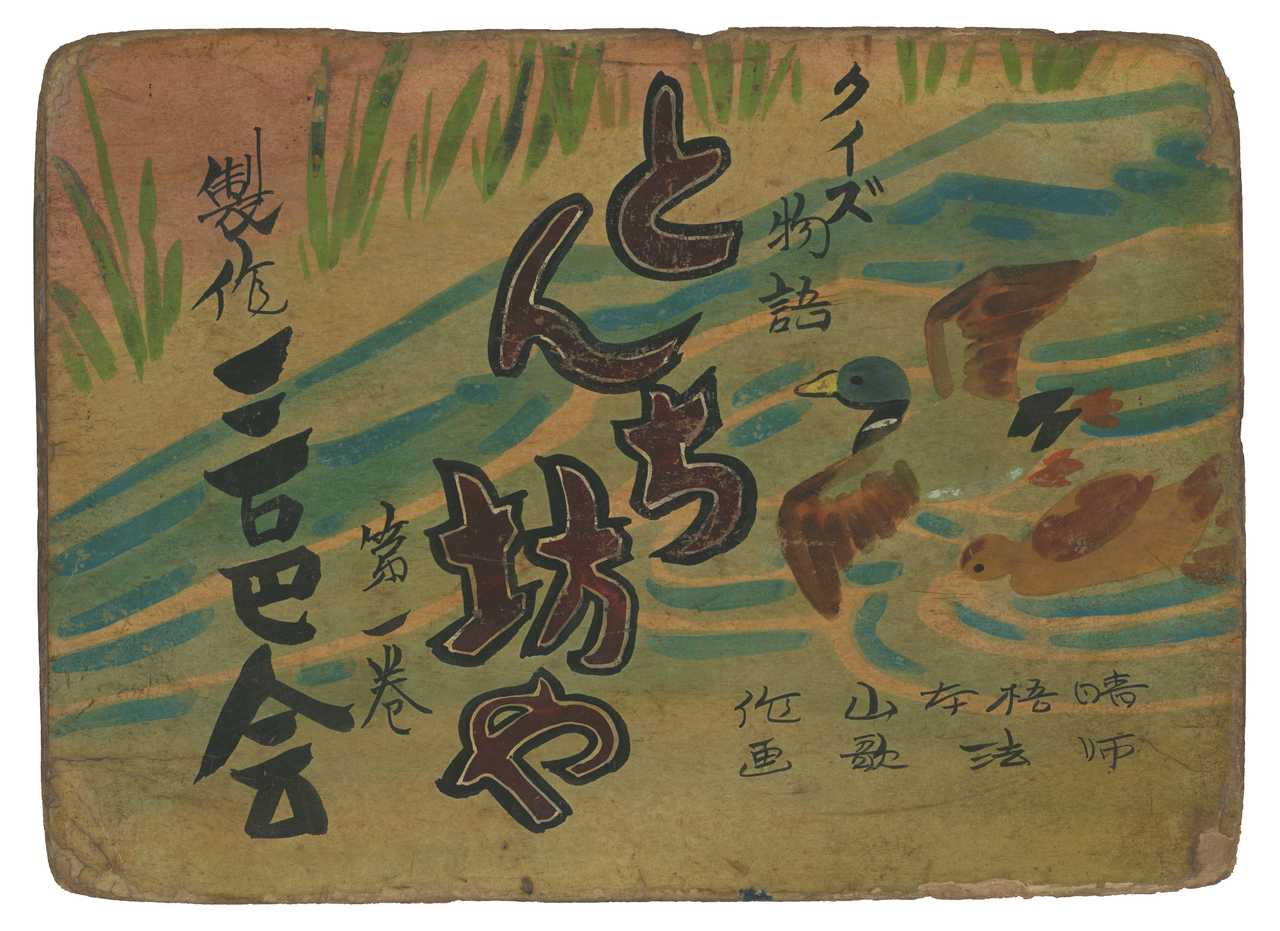 クイズ
物語
とんち
坊や
第一巻
製作
三邑会
作 山本梧晴
画 歌法師